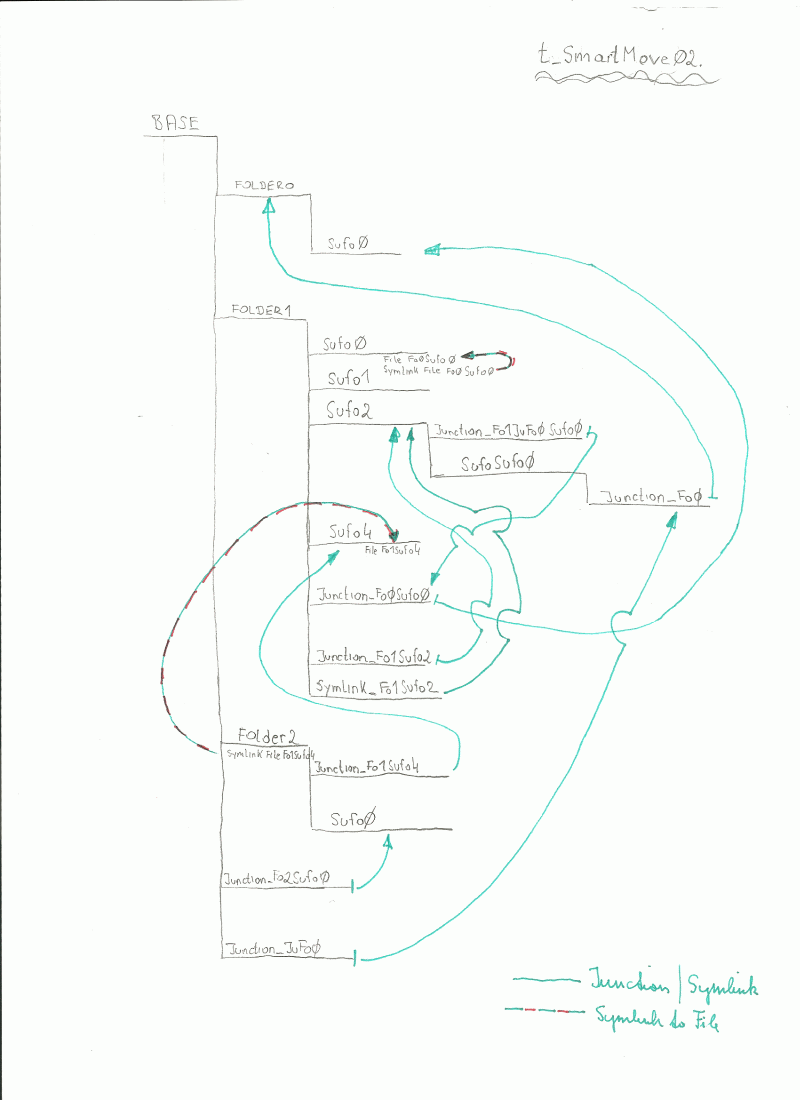 t_SmartMoveØ2.
BASE
FOLDERO
SufoØ
FOLDER1
SufoØ
File FoØSufoØ
Symlink File FoØSufoØ
Sufo1
Sufo2
Junction_Fo1JuFoØSufoØ
SufoSufoØ
Junction_FoØ
Sufo4
File Fo1Sufo4
Junction_FoØSufoØ
Junction_Fo1Sufo2
Symlink_Fo1Sufo2
Folder2
Symlink File Fo1Sufo4
Junction_Fo1Sufo4
SufoØ
Junction_Fo2SufoØ
Junction_JuFoØ
Junction | Symlink
Symlink to File